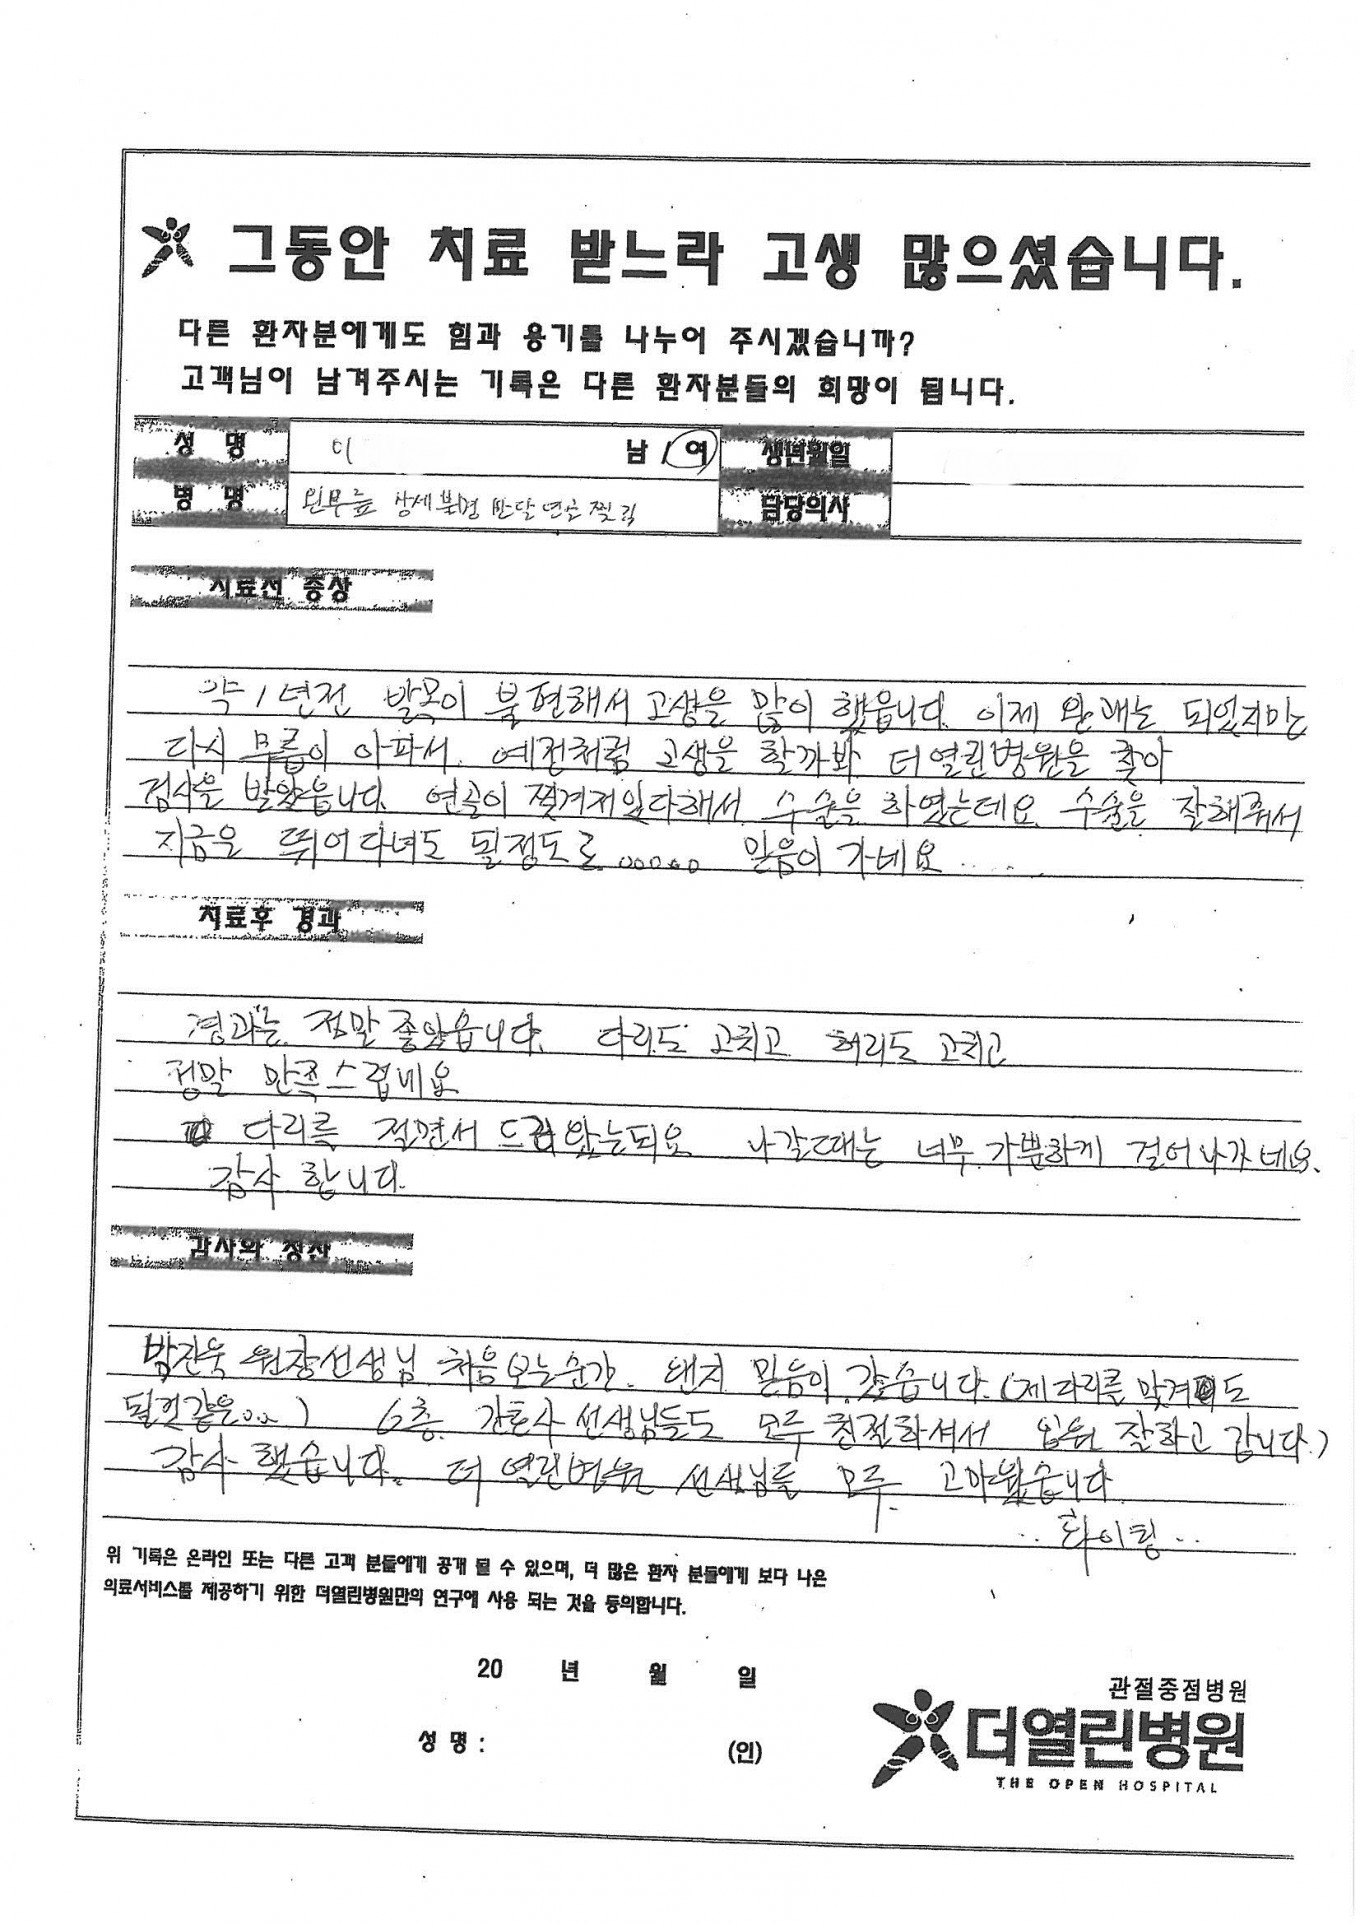 그동안 치료 받느라 고생 많으셨습니다.
다른 환자분에게도 힘과 용기를 나누어 주시겠습니까?
고객님이 남겨주시는 기록은 다른 환자분들의 희망이 됩니다.
성 명 이 남 / 여 생년월일
병 명 왼무릎 상세불명 반달연골 찢김 담당의사
치료전 증상
약 1년전 발목이 불편해서 고생을 많이 했읍니다. 이제 완쾌는 되었지만
다시 무릎이 아파서. 예전처럼 고생을 할까봐 더열린병원을 찾아
검사을 받았읍니다. 연골이 찢겨져있다해서 수술을 하였는데요. 수술을 잘해줘서
지금은 뛰어다녀도 될정도로..... 믿음이 가네요.....
치료후 경과
경과는 정말 좋았읍니다. 다리도 고치고 허리도 고치고
정말 만족스럽네요
다리를 절면서 들어왔는되요 나갈때는 너무 가뿐하게 걸어나가네요.
감사 합니다.
감사와 칭찬
박진욱 원장선생님 처음보는순간. 왠지 믿음이 갔습니다. (제다리를 맞겨도
될것같은..) 6층 간호사 선생님들도 모두 친절하셔서 입원 잘하고 갑니다.)
감사 했습니다. 더 열린병원 선생님들 모두 고마웠습니다
.. 화이팅 ..
위 기록은 온라인 또는 다른 고객 분들에게 공개 될 수 있으며, 더 많은 환자 분들에게 보다 나은
의료서비스를 제공하기 위한 더열린병원만의 연구에 사용 되는 것을 동의합니다.
20 년 월 일
성 명 : (인)
관절중점병원
더열린병원
THE OPEN HOSPITAL